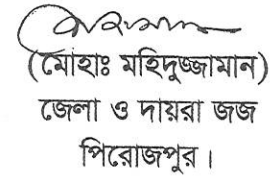 (মোহাঃ মহিদুজ্জামান)
জেলা ও দায়রা জজ
পিরোজপুর।